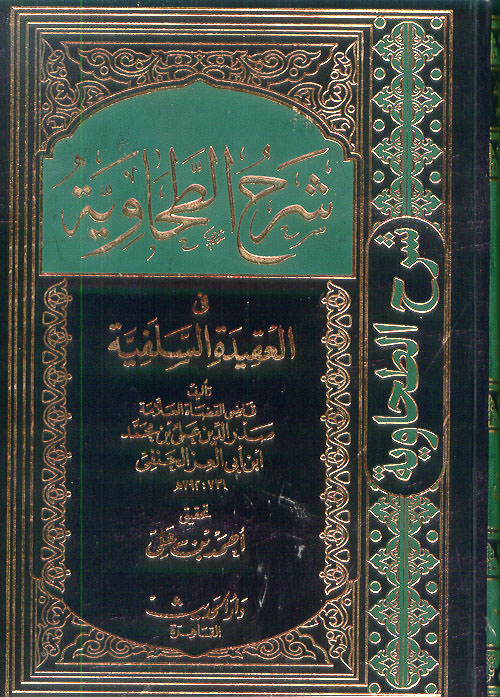 شَرْحُ الطَّحَاوِيَّةُ
في
العقيدة السلفية
تأليف
قاضى القضاة العلامة
صدر الدين على بن محمد
ابن أبى العز الحنفى
٧٣١ - ٧٩٢ هـ
تحقيق
أحمد بن على
دار الحديث
القاهرة
شرح الطحاوية